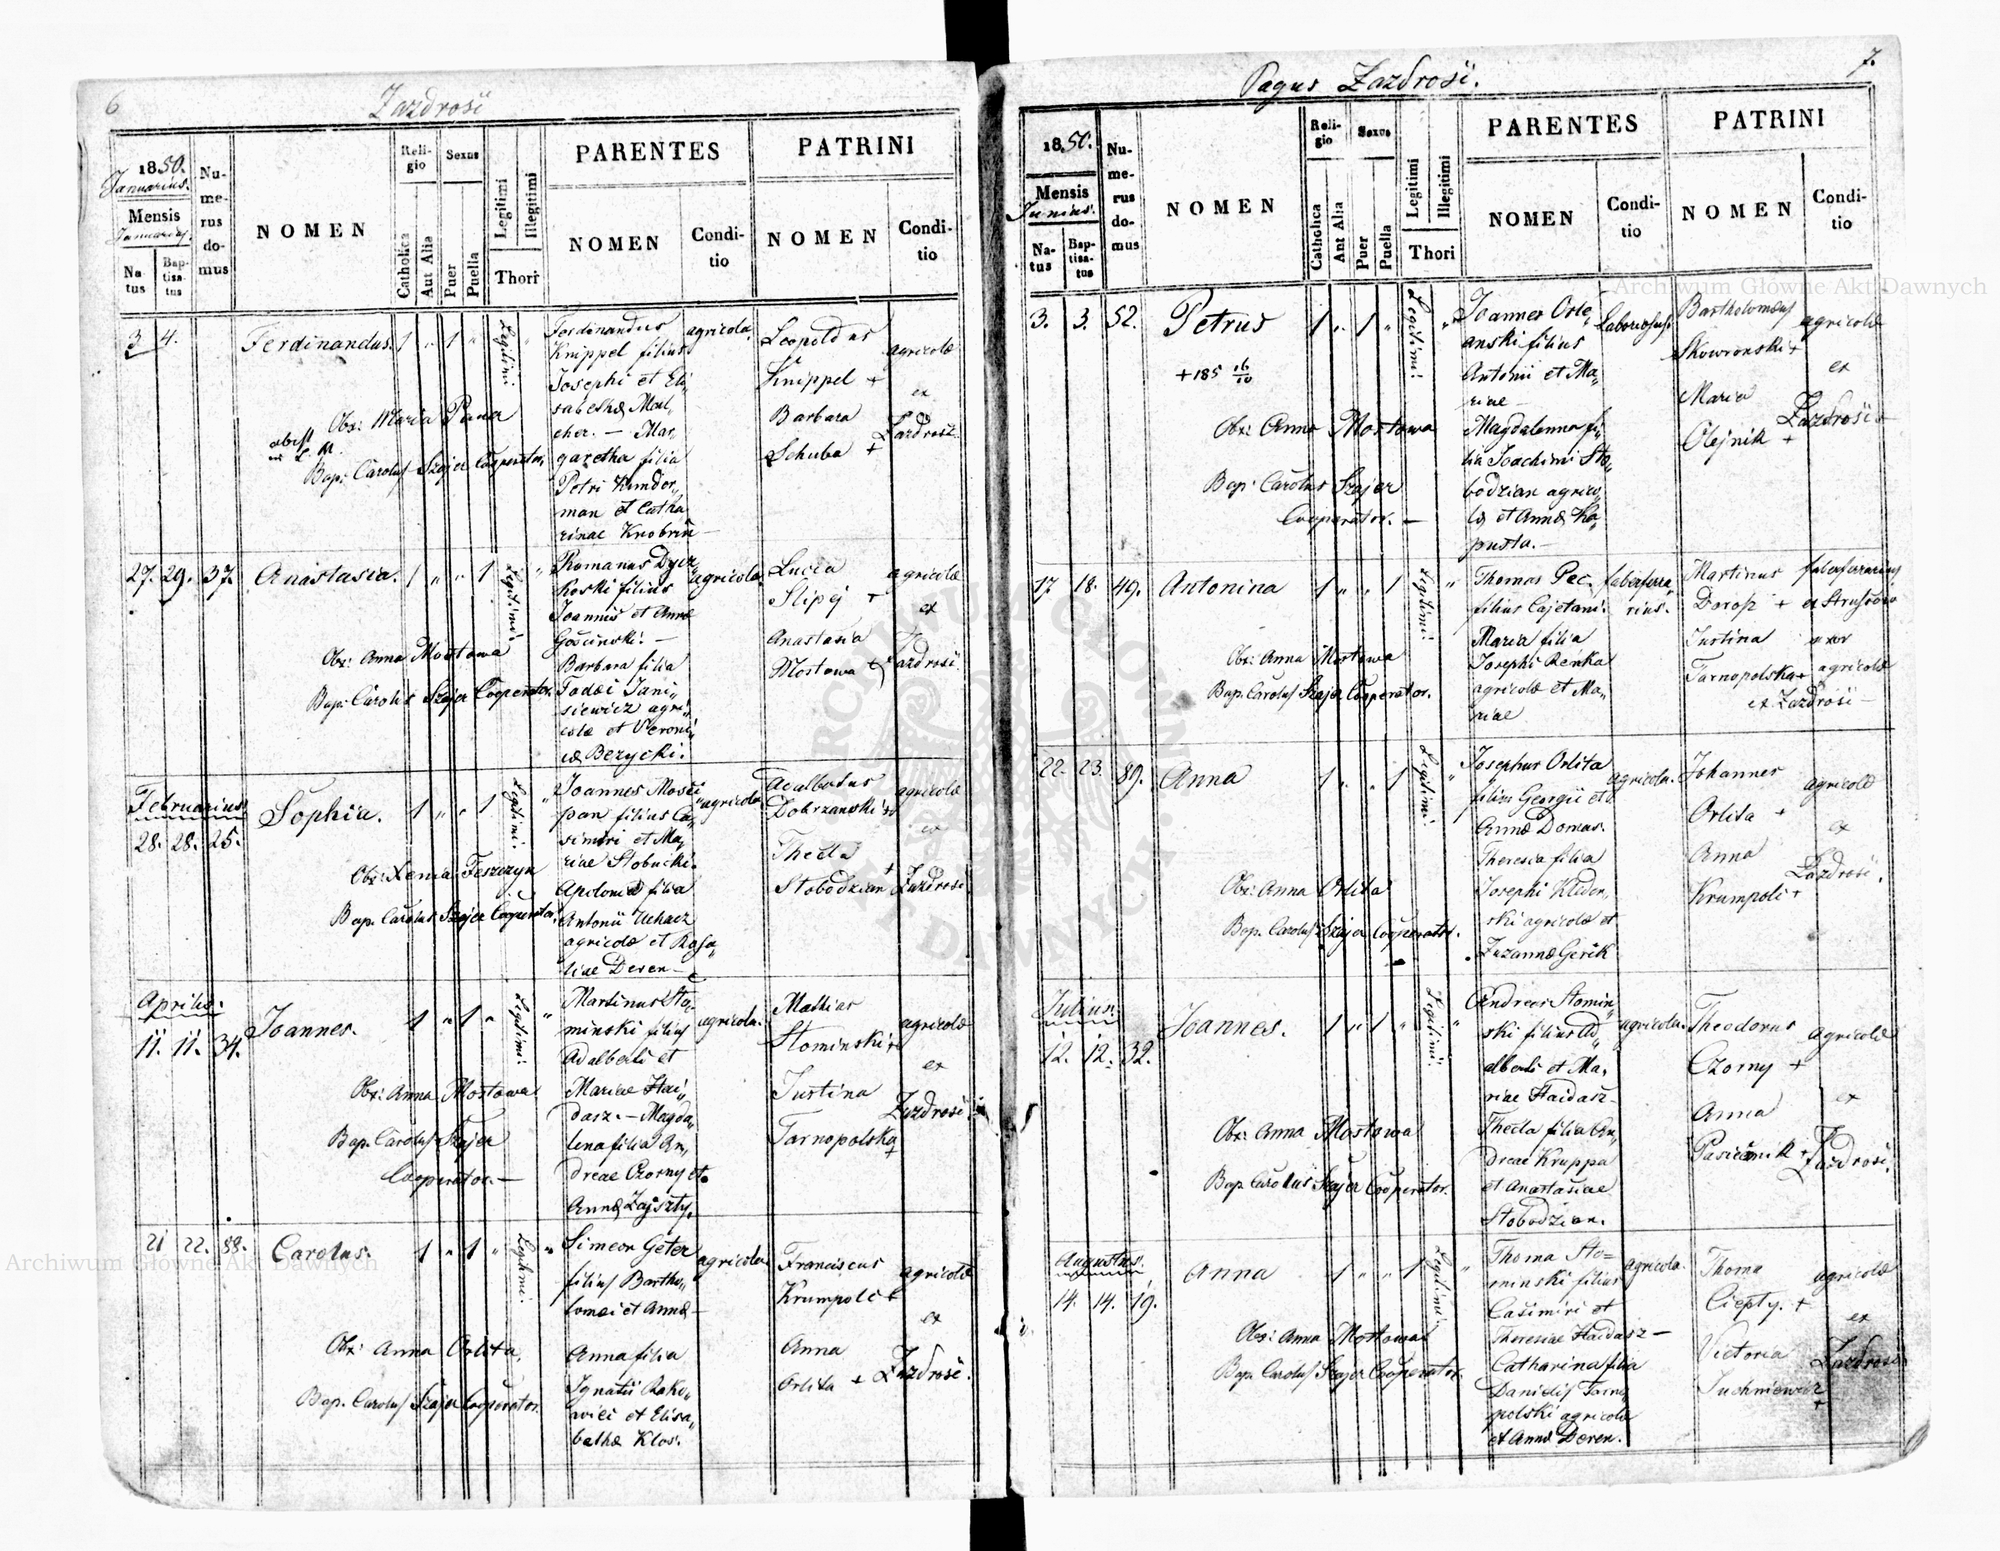 6
Zazdrosi
1850.
Januarius.
Mensis
Januarij.
Na-
tus
Bap-
tisa-
tus
Nu-
me-
rus
do-
mus
NOMEN
Reli-
gio
Catholica
Aut Alia
Sexus
Puer
Puella
Legitimi
Illegitimi
Thori
PARENTES
NOMEN
Condi-
tio
PATRINI
NOMEN
Condi-
tio
3 4. Ferdinandus. 1 „ 1 „ Legitimi „
Obx: Maria Pana
Bap: Carolus Szajer Cooperator.
Ferdinandus
Knippel filius
Josephi et Eli„
sabethæ Mal„
cher. — Mar„
garetha filia
Petri Kundor„
man et Catha
rinae Knobrin —
agricola.
Leopoldus
Knippel +
Barbara
Schuba +
agricolæ
ex
Zazdrosi.
27. 29. 37. Anastasia. 1 „ „ 1 Legitimi. „
Obx: Anna Mostowa
Bap: Carolus Szajer Cooperator.
Romanus Dycz„
koski filius
Joannis et Annæ
Gościnski. —
Barbara filia
Tadæi Jani„
siewicz agri„
colæ et Veroni„
cæ Bezycki.
agricola.
Lucia
Slipej +
Anastasia
Mostowa +
agricolæ
ex
Zazdrosi.
Februarius
28. 28. 25. Sophia. 1 „ „ 1 Legitimi. „
Obx: Xenia Feszczyn
Bap. Carolus Szajer Cooperator.
Joannes Mosci
pan filius Ca„
simiri et Ma„
riae Slobucki.
Apolonia filia
Antonii Uchacz
agricolæ et Rosa„
liae Deren —
agricola
Adalbertus
Dobrzanski +
Thecla
Stobodzian +
agricolæ
ex
Zazdrosi
Aprilis.
11. 11. 34. Joannes. 1 „ 1 „ Legitimi. „
Obx: Anna Mostowa
Bap. Carolus Szajer
Cooperator. —
Martinus Sto„
minski filius
Adalberti et
Mariae Hai„
dasz. — Magda„
lena filia An„
dreae Czorny et
Annæ Zajszly.
agricola.
Mathias
Stominski +
Justina
Tarnopolska
+
agricolæ
ex
Zazdrosi
21 22. 88. Carolus. 1 „ 1 „ Legitimi. „
Obx: Anna Orlita
Bap. Carolus Szajer Cooperator.
Simeon Geter
filius Bartho„
lomei et Annæ —
Anna filia
Ignatii Rako„
wici et Elisa„
bethæ Klos.
agricola.
Franciscus
Krumpolc +
Anna
Orlita +
agricolæ
ex
Zazdrosi.
7.
Pagus Zazdrosi.
1850.
Mensis
Junius.
Na-
tus
Bap-
tisa-
tus
Nu-
me-
rus
do-
mus
NOMEN
Reli-
gio
Catholica
Aut Alia
Sexus
Puer
Puella
Legitimi
Illegitimi
Thori
PARENTES
NOMEN
Condi-
tio
PATRINI
NOMEN
Condi-
tio
3. 3. 52. Petrus 1 „ 1 „ Legitimi. „
+ 185 16/10
Obx: Anna Mostowa
Bap: Carolus Szajer
Cooperator. —
Joannes Orle„
anski filius
Antonii et Ma„
riae —
Magdalenna fi„
lia Joachimi Sto„
bodzian agrico„
læ et Annæ Ka„
pusta. —
Laboriosus.
Bartholomæus
Skowronski +
Maria
Olejnik +
agricolæ
ex
Zazdrosi
17 18. 49. Antonina 1 „ „ 1 Legitimi. „
Obx: Anna Mostowa
Bap. Carolus Szajer Cooperator.
Thomas Pec.
filius Cajetani.
Maria filia
Josephi Renka
agricolæ et Ma„
riae
faberferra„
rius.
Martinus
Dorosz +
Justina
Tarnopolska +
faberferrarius
ex Strussow
uxor
agricolæ
ex Zazdrosi —
22. 23. 89. Anna 1 „ „ 1 Legitimi. „
Obx: Anna Orlita
Bap. Carolus Szajer Cooperator.
Josephus Orlita
filius Georgii et
Annæ Domas.
Theresia filia
Josephi Klidor„
ski agricolæ et
Zuzannæ Gerik
agricola.
Johannes
Orlita +
Anna
Krumpolc +
agricolæ
ex
Zazdrosi.
Julius.
12. 12. 32. Joannes. 1 „ 1 „ Legitimi. „
Obx: Anna Mostowa
Bap. Carolus Szajer Cooperator.
Andreas Stomin„
ski filius Ad„
alberti et Ma„
riae Haidasz —
Thecla filia An„
dreae Kruppa
et Anastasiae
Stobodzian.
agricola.
Theodorus
Czorny +
Anna
Pasicznik +
agricolæ
ex
Zazdrosi.
Augustus.
14. 14. 19. Anna 1 „ „ 1 Legitimi. „
Obx: Anna Mostowa
Bap. Carolus Szajer Cooperator.
Thoma Sto=
minski filius
Casimiri et
Theresiae Haidasz —
Catharina filia
Danielis Tarno
polski agricolæ
et Annæ Deren.
agricola.
Thoma
Ciepty. +
Victoria
Juchniewicz
+
agricolæ
ex
Zazdrosi
Archiwum Główne Akt Dawnych
Archiwum Główne Akt Dawnych
ARCHIWUM GŁÓWNE AKT DAWNYCH